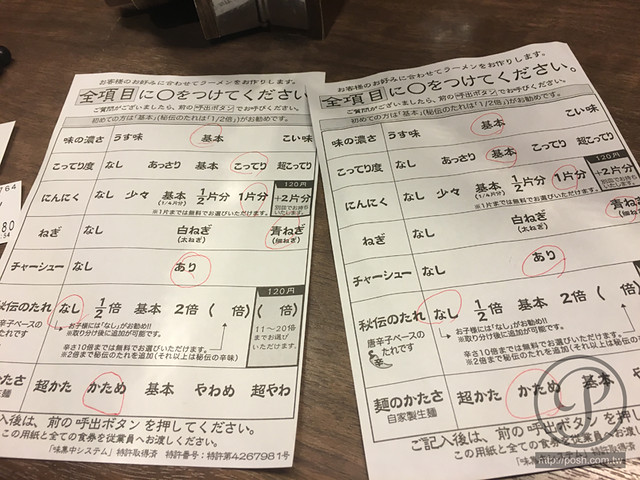 764
80
:54
お客様のお好みに合わせてラーメンをお作りします。
全項目に〇をつけてください
ご質問がございましたら、前の呼出ボタンでお呼びください。
初めての方は「基本」(秘伝のたれは「1/2倍」)がお勧めです。
味の濃さ うす味 基本 こい味
こってり度 なし あっさり 基本 こってり 超こってり
にんにく なし 少々 基本 (1/4片分) 1/2片分 1片分 120円 +2片分
※1片までは無料でお選びいただけます。
ねぎ なし 白ねぎ (太ねぎ) 青ねぎ (細ねぎ)
チャーシュー なし あり
秘伝のたれ なし 1/2倍 基本 2倍 ( 倍) 120円 ( 倍)
辛子ベースの
たれです
お子様には「なし」がお勧め!!
※取り分け後に追加が可能です。
11~20倍
までお選び
いただけます
辛さ10倍までは無料でお選びいただけます。
※2倍まで秘伝のたれを追加(それ以上は秘伝の辛味)
かたさ 超かた かため 基本 やわめ 超やわ
生麺
記入後は、前の呼出ボタンを押してください。
この用紙と全ての食券を従業員へお渡しください。
「味集中システム」特許取得済 特許番号:特許第4267981号
お客様のお好みに合わせてラーメンをお作りします。
全項目に〇をつけてください。
ご質問がございましたら、前の呼出ボタンでお呼びください。
初めての方は「基本」(秘伝のたれは「1/2倍」)がお勧めです。
味の濃さ うす味 基本 こい味
こってり度 なし あっさり 基本 こってり 超こってり
にんにく なし 少々 基本 (1/4片分) 1/2片分 1片分 120円 +2片分
※1片までは無料でお選びいただけます。
ねぎ なし 白ねぎ (太ねぎ) 青ねぎ (細ねぎ)
チャーシュー なし あり
秘伝のたれ なし 1/2倍 基本 2倍 ( 倍)
唐辛子ベースの
たれです
お子様には「なし」がお勧め!!
※取り分け後に追加が可能です。
辛さ10倍までは無料でお選びいただけます。
※2倍まで秘伝のたれを追加(それ以上は秘伝の
麺のかたさ 超かた かため 基本 や
自家製生麺
ご記入後は、前の呼出ボタンを押して
この用紙と全ての食券を従業員へお渡し
「味集中システム」特許取得済
P
http://posh.com.tw